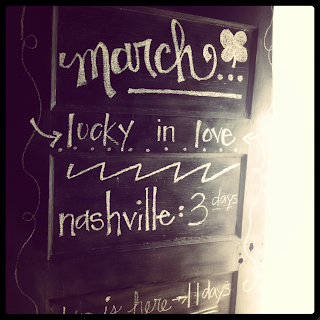 march...
lucky in love
nashville: 3 days
is here → 11 days